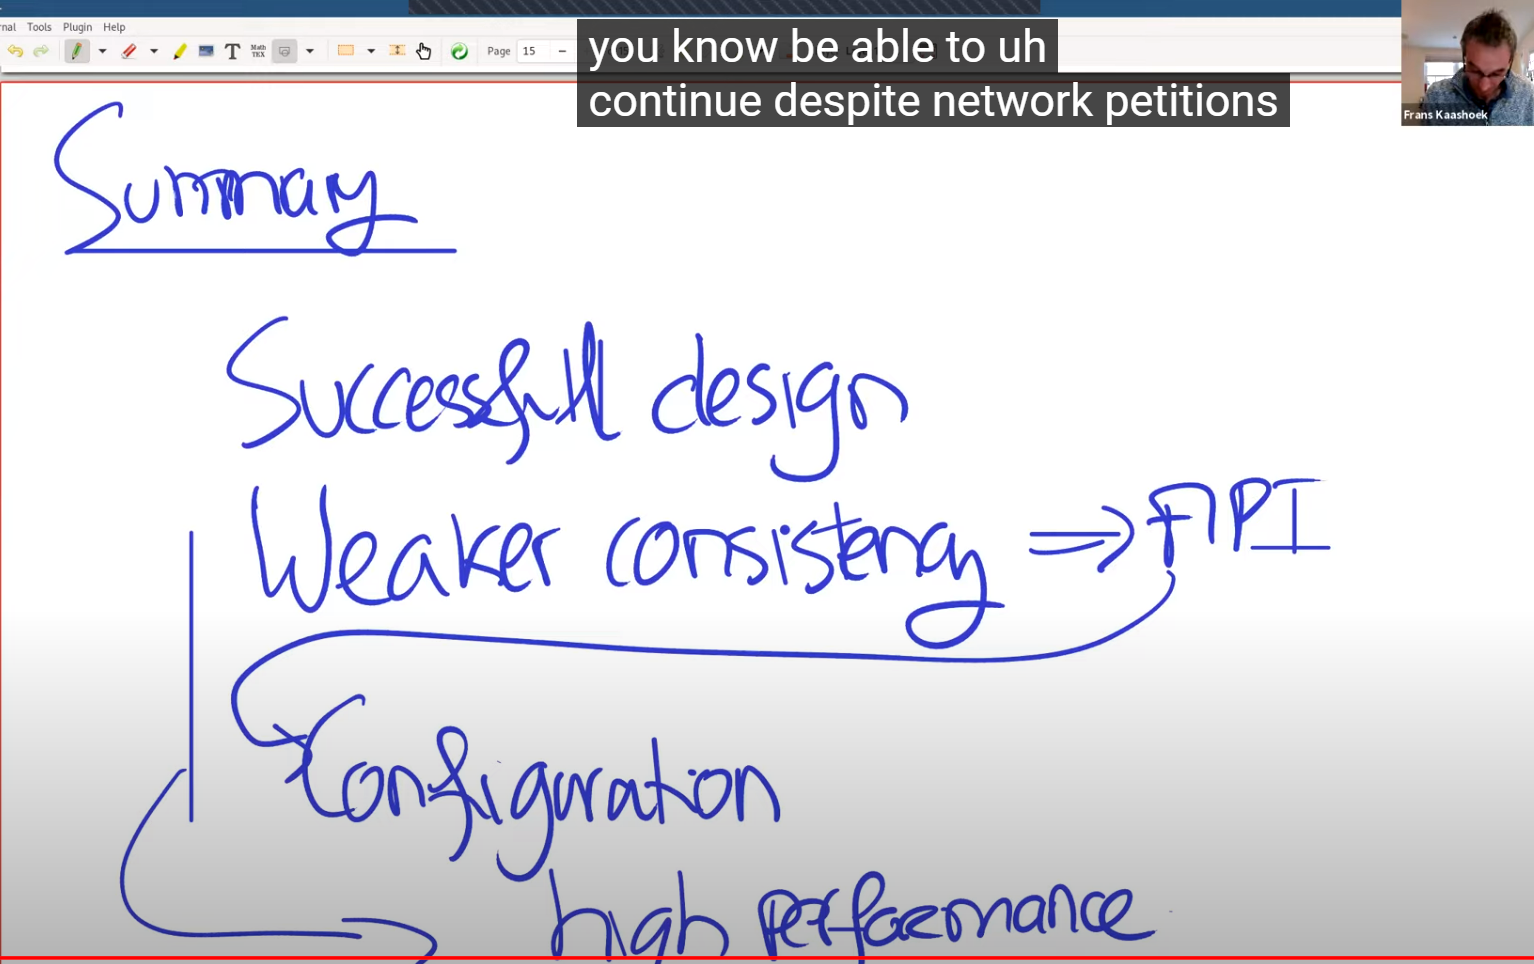 nal Tools Plugin Help
T Math TEX Page 15
you know be able to uh
continue despite network petitions
Frans Kaashoek
Summary
Successfull design
Weaker consistency ⇒ API
Configuration
high performance